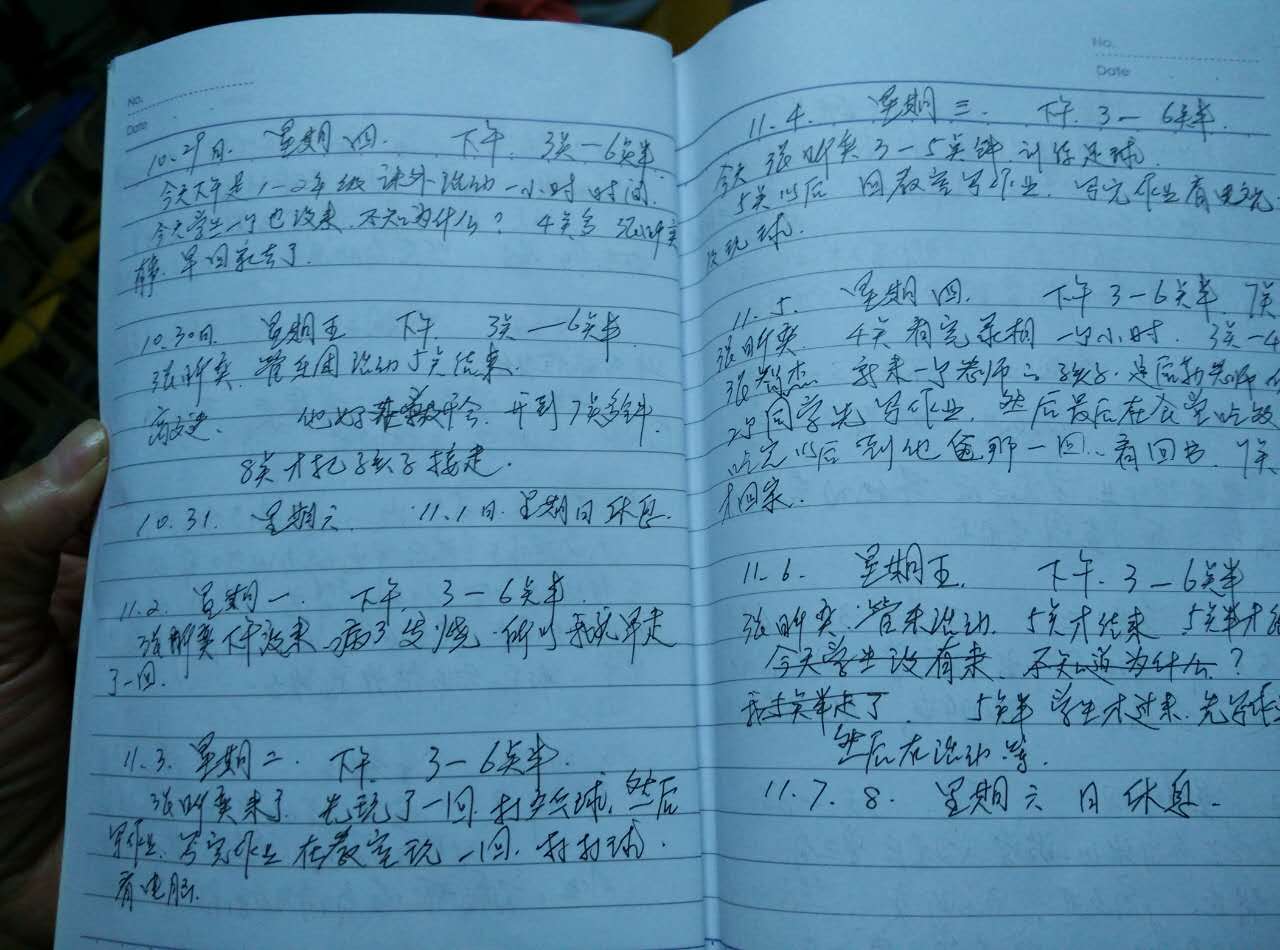 No.
Date
10.29日. 星期四. 下午. 3点—6点半
今天下午是1-2年级课外活动一小时时间.
今天学生一个也没来.不知为什么? 4点多 张昕奕
早回家去了.
10.30日. 星期五 下午 3点—6点半.
张昕奕. 管乐团活动5点结束.
他妈 开会. 开到7点多钟.
8点才把孩子接走.
10.31. 星期六. 11.1日.星期日休息.
11.2. 星期一. 下午. 3—6点半.
张昕奕下午没来.病了发烧.所以我就早走
了一回.
11.3. 星期二. 下午. 3—6点半.
张昕奕来了. 先玩了一回.打乒乓球.然后
写作业.写完作业在教室玩一回.打打球.
看电脑.
No.
Date
11.4. 星期三. 下午.3—6点半.
今天 张昕奕3—5点钟.训练足球.
5点以后 回教室写作业. 写完作业看电脑
没玩球.
11.5. 星期四. 下午3—6点半. 7点
张昕奕 4点看完录相一个小时. 3点—4
张智杰 新来一个老师的孩子.是后勤老师
2个同学先写作业. 然后最后在食堂吃饭
吃完以后到他爸那一回..看回书. 7点
才回家.
11.6. 星期五. 下午.3—6点半
张昕奕.管乐活动. 5点才结束 5点半才
今天学生没有来. 不知道为什么?
我 点半走了. 5点半学生才过来.先写作
然后在活动等.
11.7.8. 星期六 日 休息.